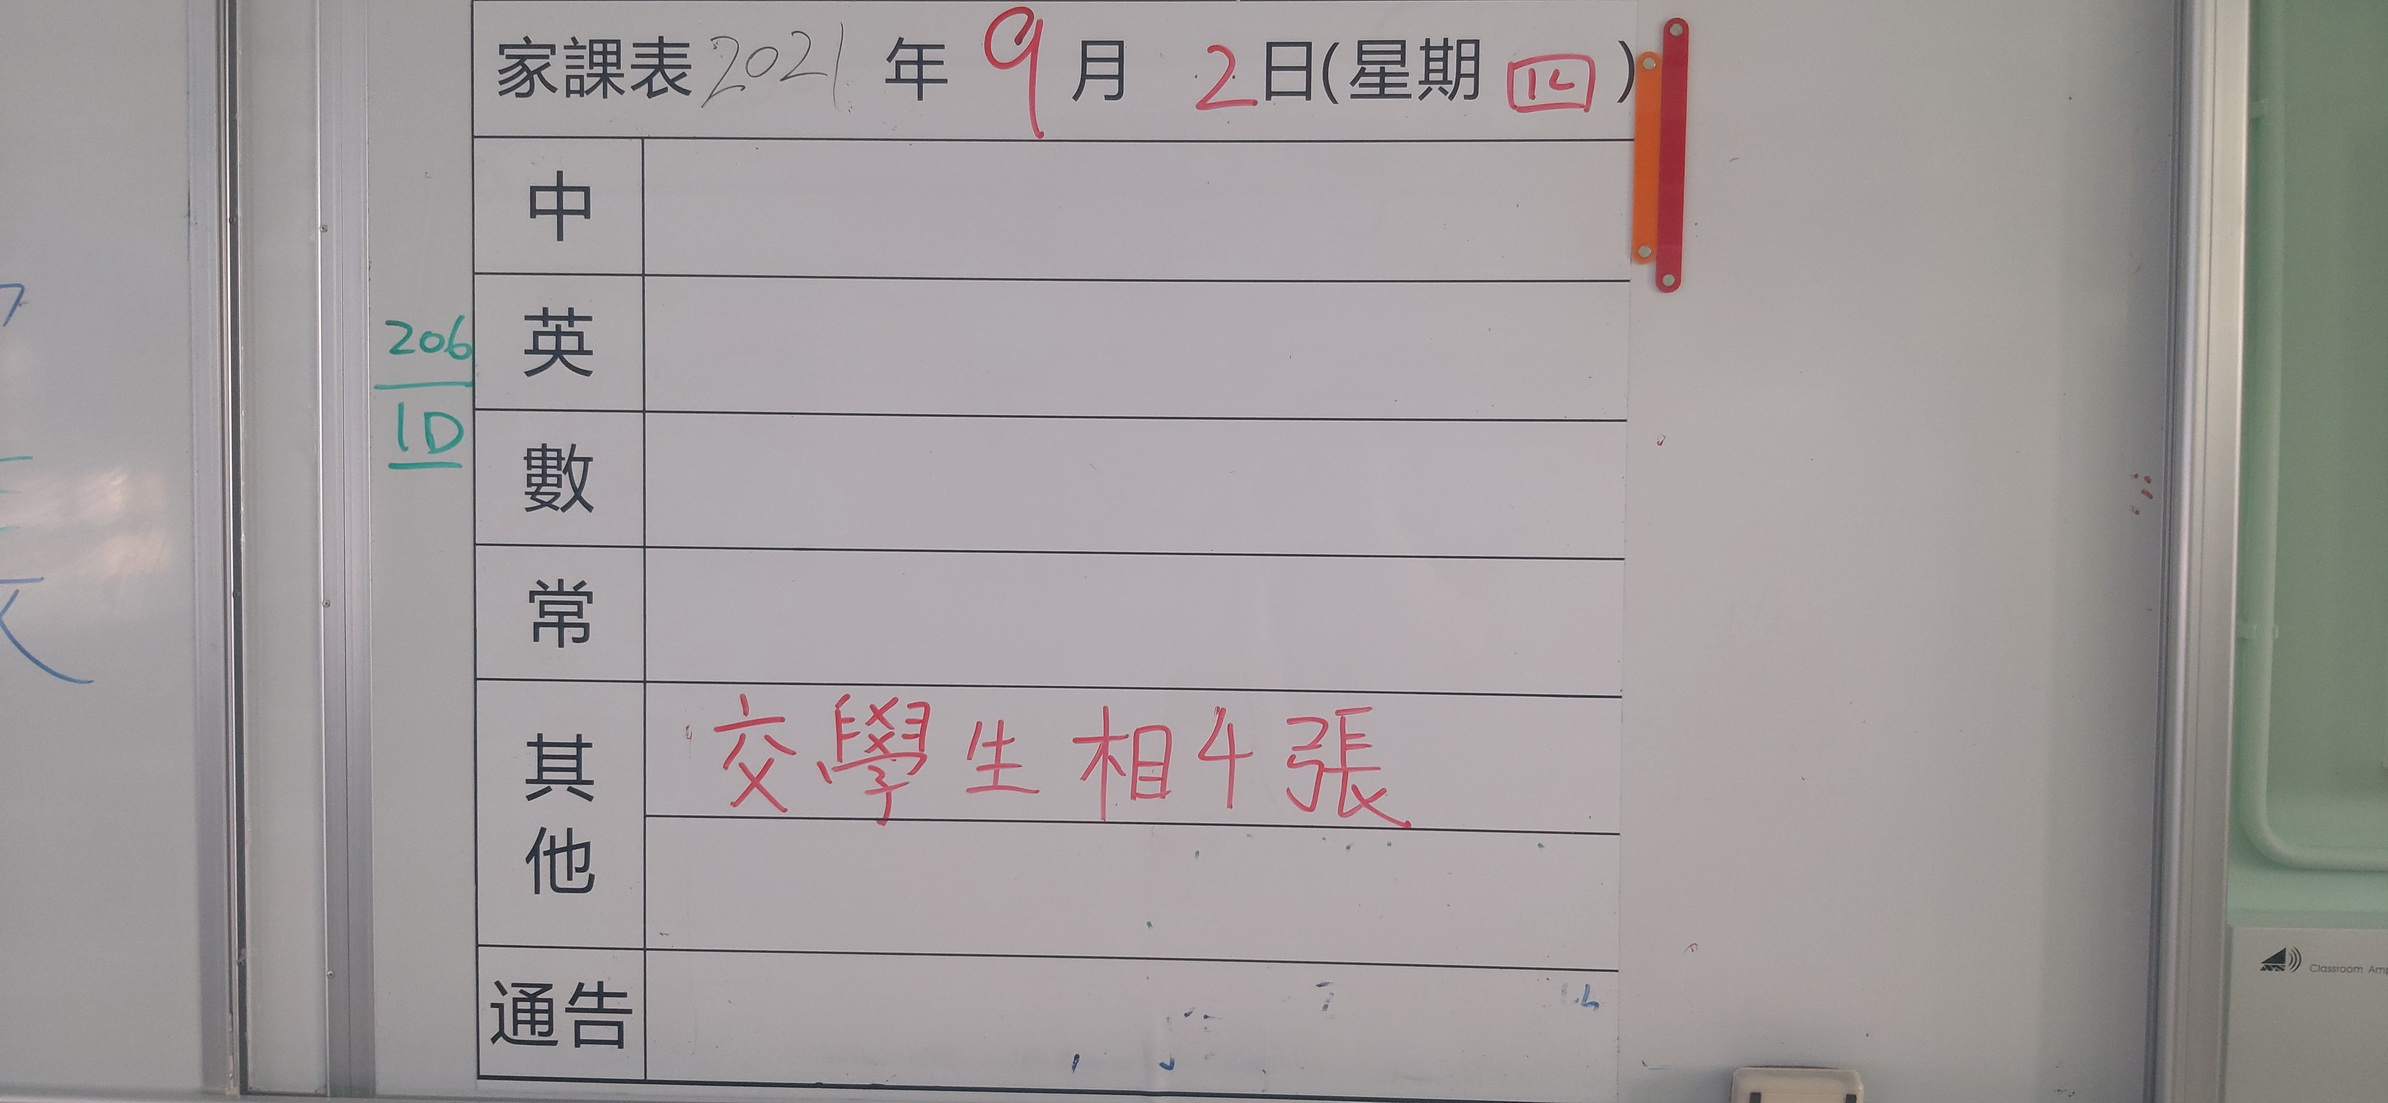 家課表 2021 年 9 月 2 日(星期 四)
中
英
206
1D
數
常
其他
交學生相4張
通告
Classroom Amp